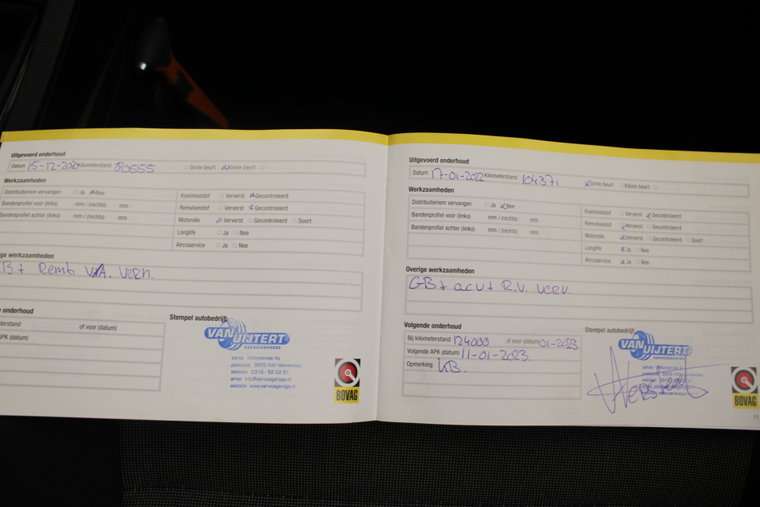 Uitgevoerd onderhoud
Datum 15-12-2020 Kilometerstand 80555 Grote beurt Kleine beurt
Werkzaamheden
Distributieriem vervangen Ja Nee
Bandenprofiel voor (links) mm / (rechts) mm
Bandenprofiel achter (links) mm / (rechts) mm
Koelvloeistof Ververst Gecontroleerd
Remvloeistof Ververst Gecontroleerd
Motorolie Ververst Gecontroleerd Soort
Longlife Ja Nee
Aircoservice Ja Nee
ige werkzaamheden
B+ Remb V.A. vern.
e onderhoud
erstand of voor (datum)
PK (datum)
Stempel autobedrijf
VAN UIJTERT
SERVICEGARAGE
telefoon 0318 - 52 20 51
website www.servicegarage.nl
BOVAG
Uitgevoerd onderhoud
Datum 17-01-2022 Kilometerstand 104371 Grote beurt Kleine beurt
Werkzaamheden
Distributieriem vervangen Ja Nee
Bandenprofiel voor (links) mm / (rechts) mm
Bandenprofiel achter (links) mm / (rechts) mm
Koelvloeistof Ververst Gecontroleerd
Remvloeistof Ververst Gecontroleerd
Motorolie Ververst Gecontroleerd Soort
Longlife Ja Nee
Aircoservice Ja Nee
Overige werkzaamheden
GB+ acv+ R.V. verv.
Volgende onderhoud
Bij kilometerstand 124000 of voor datum 01-2023
Volgende APK (datum) 11-01-2023
Opmerking KB.
Stempel autobedrijf
VAN UIJTERT
SERVICEGARAGE
BOVAG
11